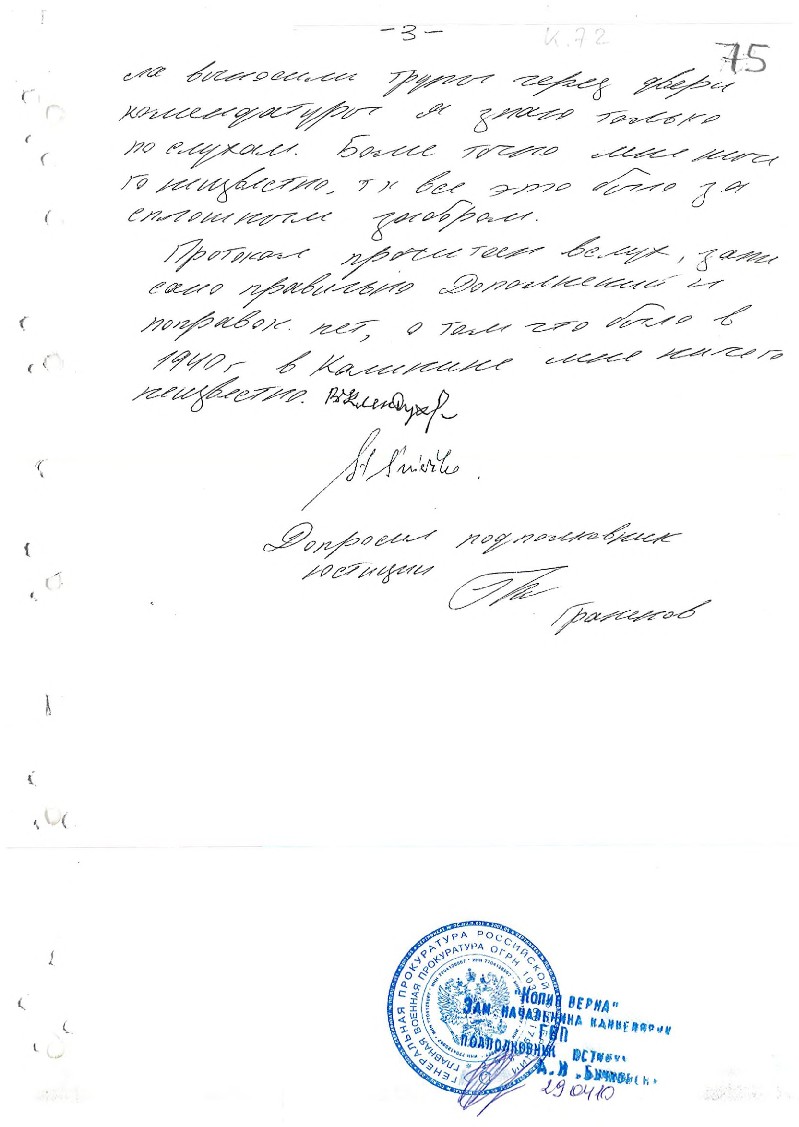 -3-
К.72
75
ла выносили трупы через двери
комендатуры я знаю только
по слухам. Более точно мне ниче
го неизвестно, т к все это было за
сплошным забором.
Протокол прочитан вслух, запи
сано правильно Дополнений и
поправок нет, о том что было в
1940г в Калинине мне ничего
неизвестно.
Допросил подполковник
юстиции
Граненов
ГЕНЕРАЛЬНАЯ ПРОКУРАТУРА РОССИЙСКОЙ
ГЛАВНАЯ ВОЕННАЯ ПРОКУРАТУРА ОГРН 103
"КОПИЯ ВЕРНА"
ЗАМ. НАЧАЛЬНИКА КАНЦЕЛЯРИИ
ГВП
ПОДПОЛКОВНИК ЮСТИЦ
А.И.
29 04 10